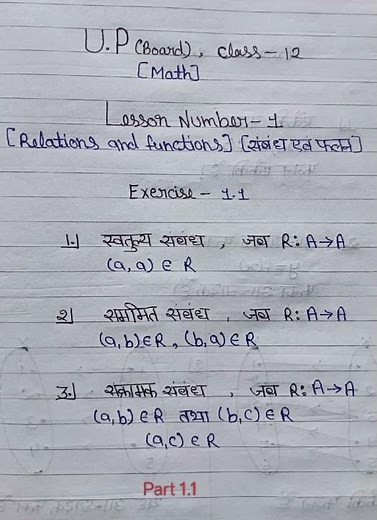 U.P (Board), class - 12
[Math]
Lesson Number - 1
[Relations and functions] [संबंध एवं फलन]
Exercise - 1.1
1.] स्वतुल्य संबंध , जब R: A→A
(a, a) ∈ R
2] सममित संबंध , जब R: A→A
(a, b) ∈ R , (b, a) ∈ R
3.] सक्रामक संबंध , जब R: A→A
(a, b) ∈ R तथा (b, c) ∈ R
(a, c) ∈ R
Part 1.1